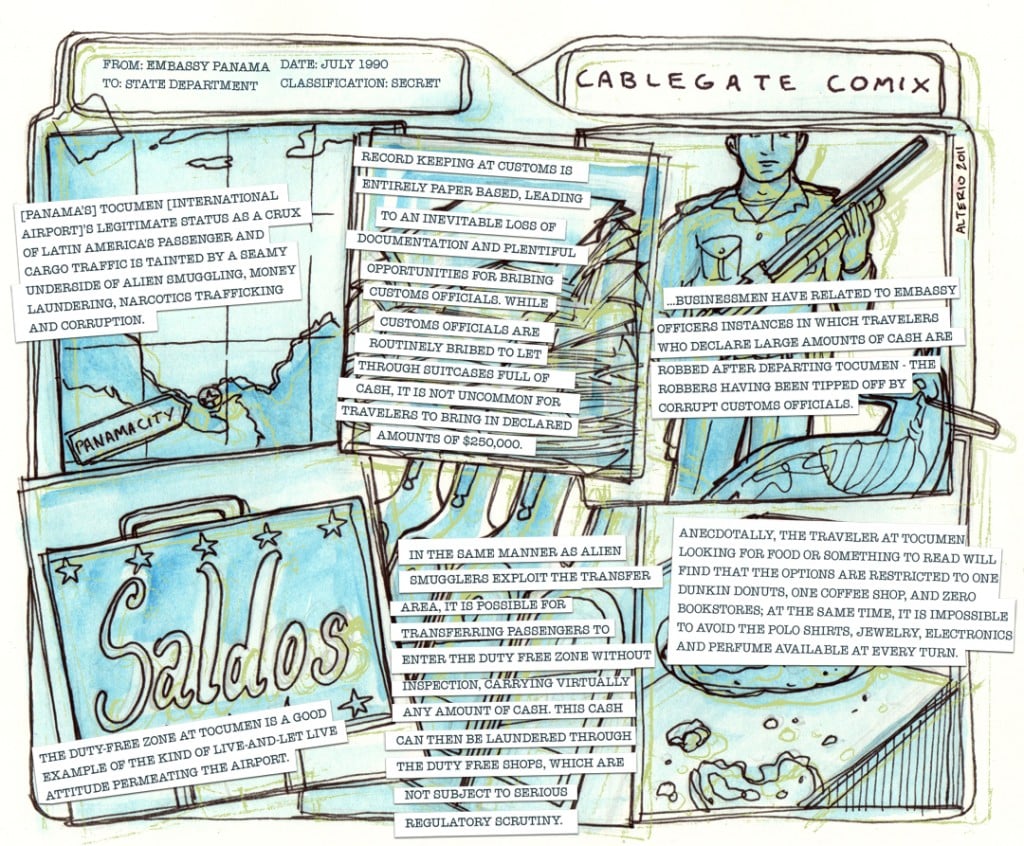 FROM: EMBASSY PANAMA
TO: STATE DEPARTMENT
DATE: JULY 1990
CLASSIFICATION: SECRET
CABLEGATE COMIX
[PANAMA'S] TOCUMEN [INTERNATIONAL
AIRPORT]'S LEGITIMATE STATUS AS A CRUX
OF LATIN AMERICA'S PASSENGER AND
CARGO TRAFFIC IS TAINTED BY A SEAMY
UNDERSIDE OF ALIEN SMUGGLING, MONEY
LAUNDERING, NARCOTICS TRAFFICKING
AND CORRUPTION.
PANAMA CITY
RECORD KEEPING AT CUSTOMS IS
ENTIRELY PAPER BASED, LEADING
TO AN INEVITABLE LOSS OF
DOCUMENTATION AND PLENTIFUL
OPPORTUNITIES FOR BRIBING
CUSTOMS OFFICIALS. WHILE
CUSTOMS OFFICIALS ARE
ROUTINELY BRIBED TO LET
THROUGH SUITCASES FULL OF
CASH, IT IS NOT UNCOMMON FOR
TRAVELERS TO BRING IN DECLARED
AMOUNTS OF $250,000.
ALTERIO 2011
...BUSINESSMEN HAVE RELATED TO EMBASSY
OFFICERS INSTANCES IN WHICH TRAVELERS
WHO DECLARE LARGE AMOUNTS OF CASH ARE
ROBBED AFTER DEPARTING TOCUMEN - THE
ROBBERS HAVING BEEN TIPPED OFF BY
CORRUPT CUSTOMS OFFICIALS.
Saldos
THE DUTY-FREE ZONE AT TOCUMEN IS A GOOD
EXAMPLE OF THE KIND OF LIVE-AND-LET LIVE
ATTITUDE PERMEATING THE AIRPORT.
IN THE SAME MANNER AS ALIEN
SMUGGLERS EXPLOIT THE TRANSFER
AREA, IT IS POSSIBLE FOR
TRANSFERRING PASSENGERS TO
ENTER THE DUTY FREE ZONE WITHOUT
INSPECTION, CARRYING VIRTUALLY
ANY AMOUNT OF CASH. THIS CASH
CAN THEN BE LAUNDERED THROUGH
THE DUTY FREE SHOPS, WHICH ARE
NOT SUBJECT TO SERIOUS
REGULATORY SCRUTINY.
ANECDOTALLY, THE TRAVELER AT TOCUMEN
LOOKING FOR FOOD OR SOMETHING TO READ WILL
FIND THAT THE OPTIONS ARE RESTRICTED TO ONE
DUNKIN DONUTS, ONE COFFEE SHOP, AND ZERO
BOOKSTORES; AT THE SAME TIME, IT IS IMPOSSIBLE
TO AVOID THE POLO SHIRTS, JEWELRY, ELECTRONICS
AND PERFUME AVAILABLE AT EVERY TURN.